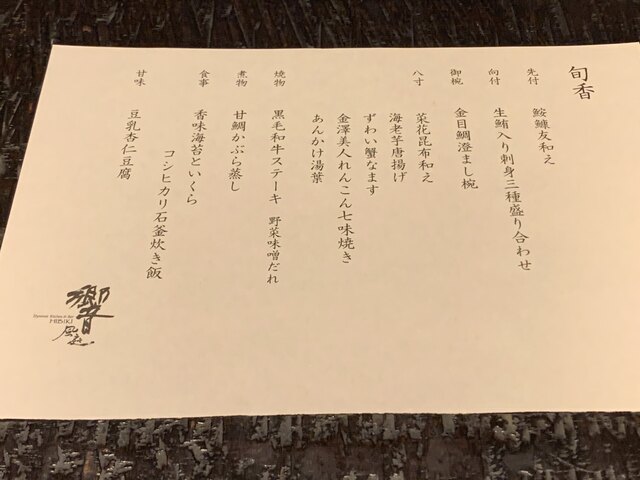 旬香
先付
鮟鱇友和え
向付
生鮪入り刺身三種盛り合わせ
御椀
金目鯛澄まし椀
八寸
菜花昆布和え
海老芋唐揚げ
ずわい蟹なます
金澤美人れんこん七味焼き
あんかけ湯葉
焼物
黒毛和牛ステーキ 野菜味噌だれ
煮物
甘鯛かぶら蒸し
食事
香味海苔といくら
コシヒカリ石釜炊き飯
甘味
豆乳杏仁豆腐
響
HIBIKI
風庭